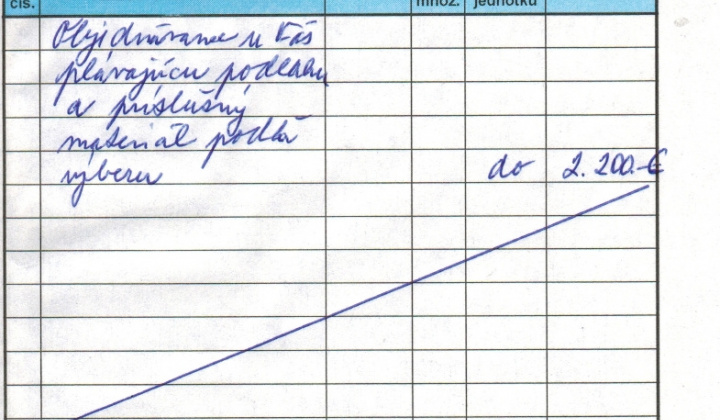 čís. množ. jednotku
Objednávame u Vás
plávajúcu podlahu
a príslušný
materiál podľa
výberu do 2.200.-€